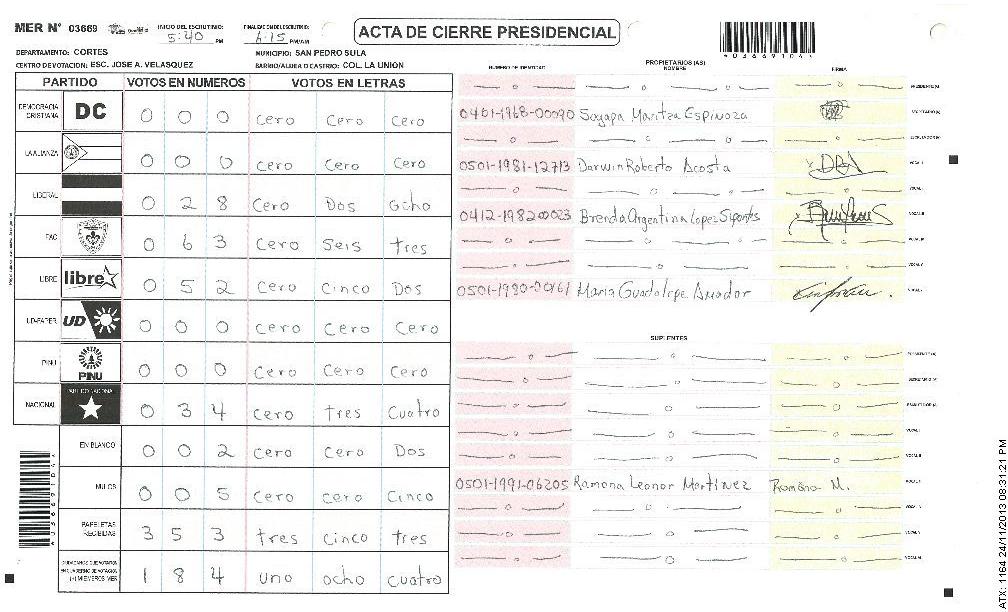 MER N° 03669
INICIO DEL ESCRUTINIO:
5:40 PM
FINALIZACION DEL ESCRUTINIO:
6:15 PM/AM
ACTA DE CIERRE PRESIDENCIAL
DEPARTAMENTO: CORTES
MUNICIPIO: SAN PEDRO SULA
CENTRO DE VOTACION: ESC. JOSE A. VELASQUEZ
BARRIO/ALDEA O CASTRO: COL. LA UNION
PARTIDO VOTOS EN NUMEROS VOTOS EN LETRAS
DEMOCRACIA CRISTIANA DC 0 0 0 Cero Cero Cero
LA ALIANZA 0 0 0 Cero Cero Cero
LIBERAL 0 2 8 Cero Dos Ocho
PAC 0 6 3 Cero Seis tres
LIBRE libre 0 5 2 Cero Cinco Dos
UD-FAPER UD 0 0 0 Cero Cero Cero
PINU PINU 0 0 0 Cero Cero Cero
NACIONAL PARTIDO NACIONAL 0 3 4 Cero tres Cuatro
EN BLANCO 0 0 2 Cero Cero Dos
NULOS 0 0 5 Cero Cero Cinco
PAPELETAS RECIBIDAS 3 5 3 tres cinco tres
1 8 4 uno ocho cuatro
NUMERO DE IDENTIDAD
PROPIETARIOS (AS)
NOMBRE
FIRMA
PRESIDENTE (A)
0401-1968-00090 Soyapa Maritza Espinoza SECRETARIO (A)
ESCRUTADOR (A)
0501-1981-12713 Darwin Roberto Acosta VOCAL I
0412-1982-00023 Brenda Argentina Lopez VOCAL III
0501-1980-00161 Maria Guadalupe Amador
SUPLENTES
PRESIDENTE (A)
SECRETARIO (A)
ESCRUTADOR (A)
VOCAL I
VOCAL II
0501-1991-06205 Ramona Leonor Martinez Ramona M.
4036691044
ATX: 1164 24/11/2013 08:31:21 PM